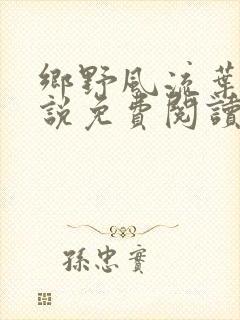 鄉野風流葉
說免費閱讀
孫忠實